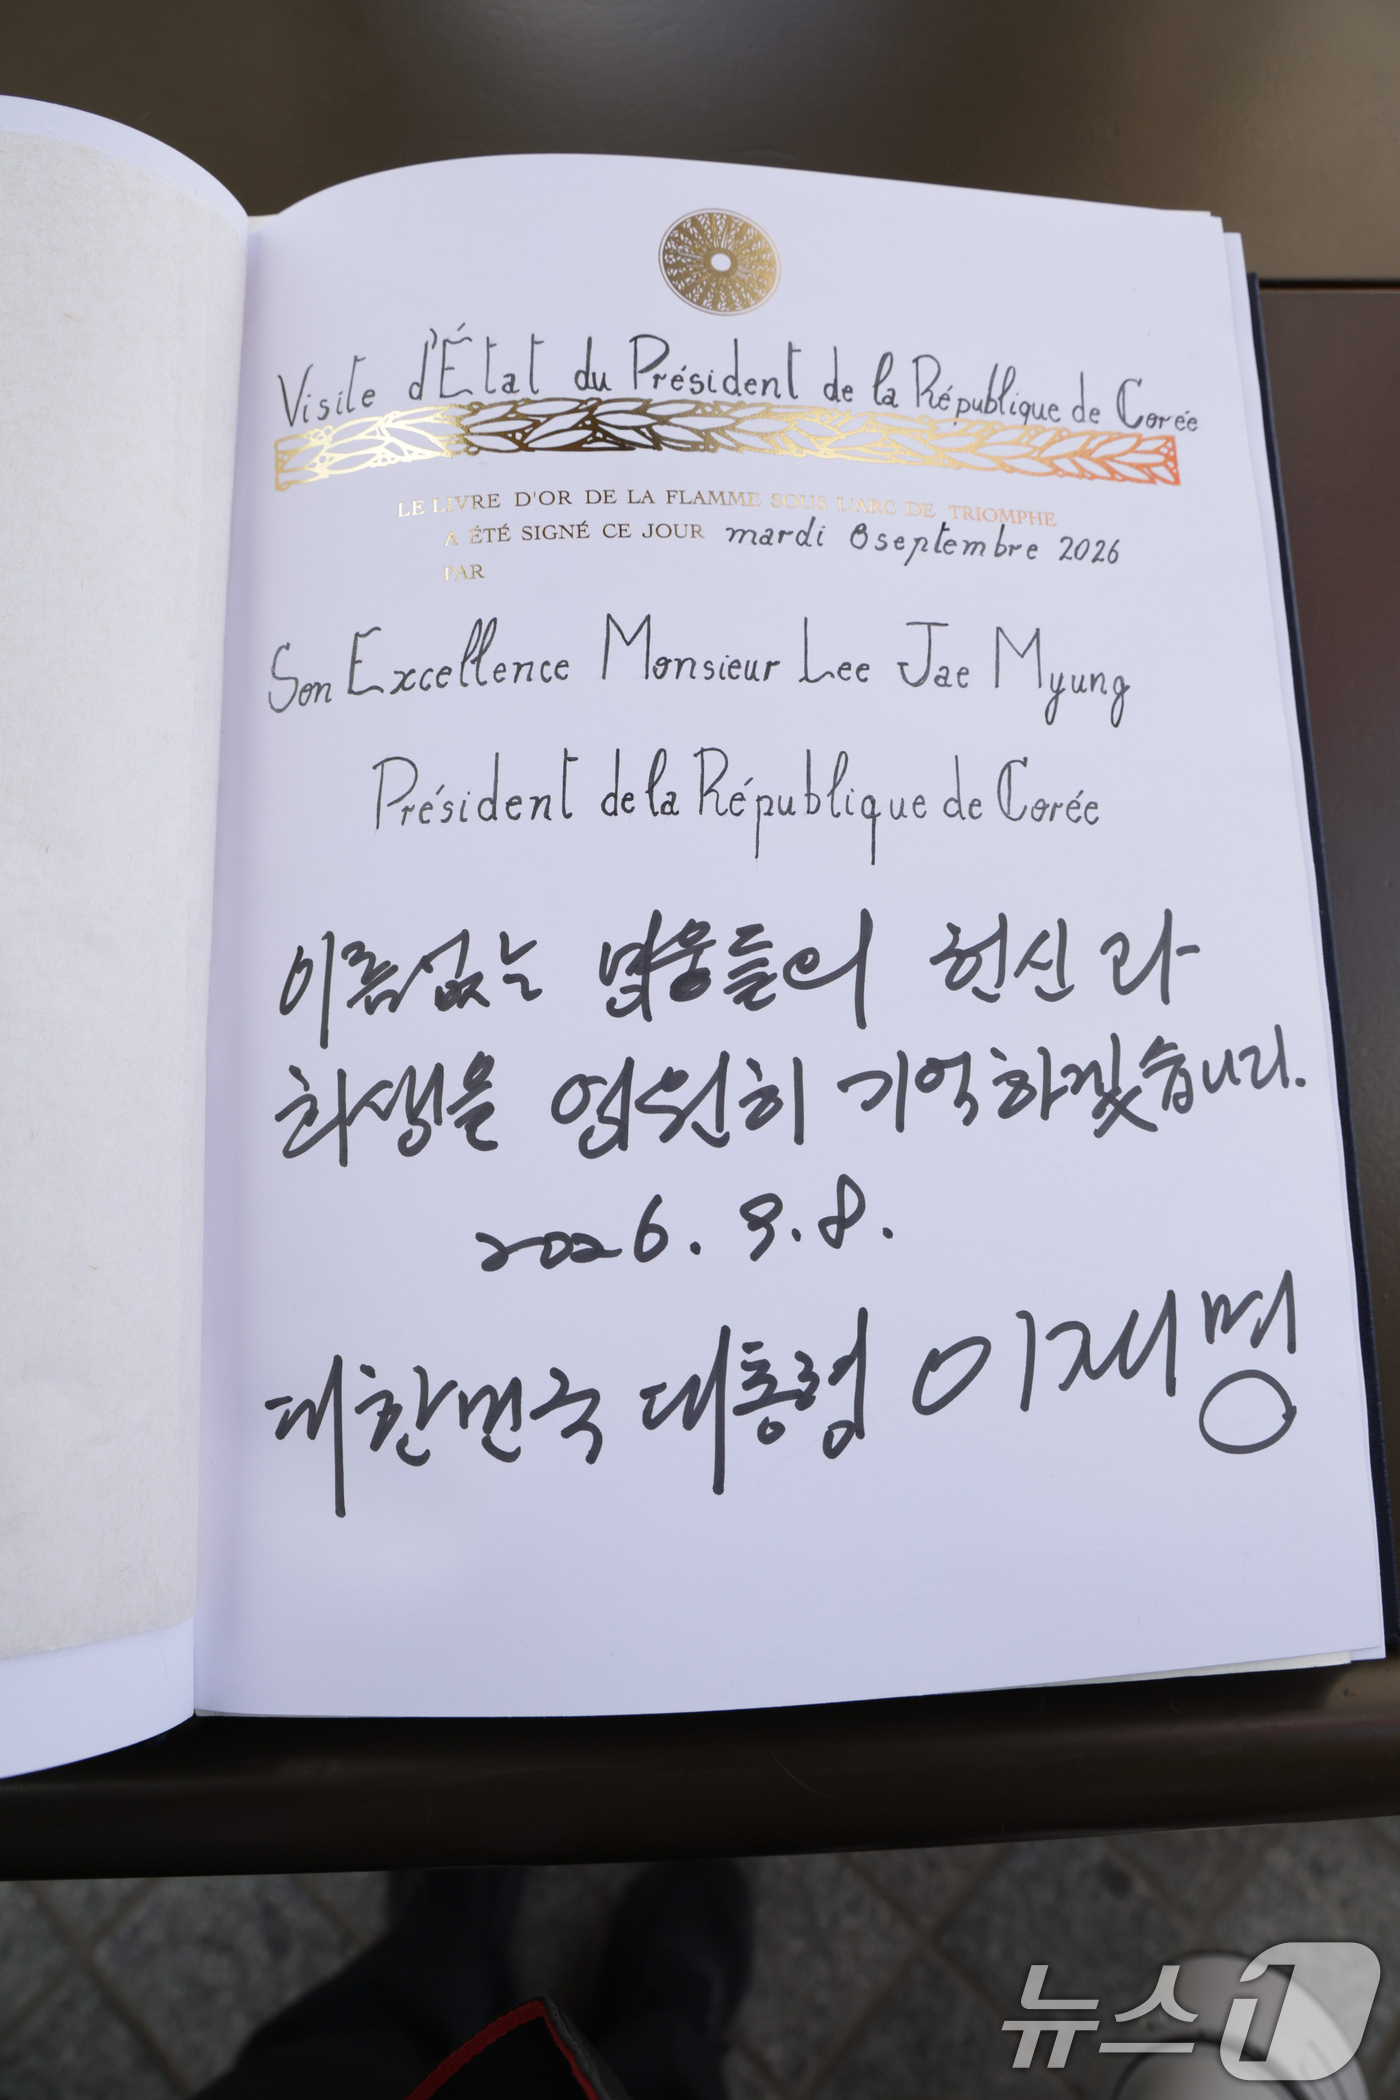 Visite d'État du Président de la République de Corée
LE LIVRE D'OR DE LA FLAMME SOUS L'ARC DE TRIOMPHE
A ÉTÉ SIGNÉ CE JOUR mardi 8 septembre 2026
PAR
Son Excellence Monsieur Lee Jae Myung
Président de la République de Corée
이름없는 영웅들의 헌신과
희생을 영원히 기억하겠습니다.
2026. 9. 8.
대한민국 대통령 이재명
뉴스1